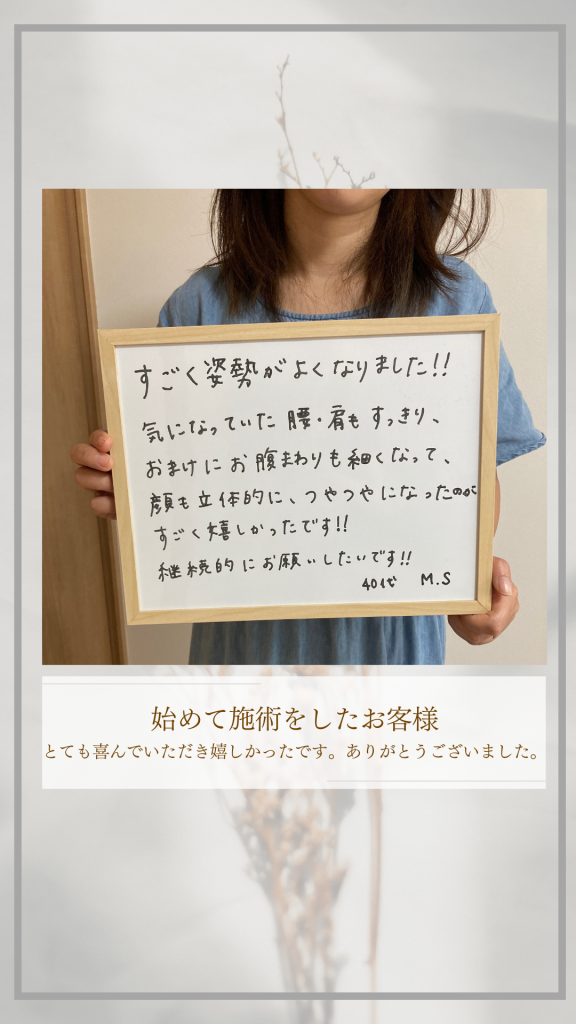 すごく姿勢がよくなりました!!
気になっていた腰・肩もすっきり、
おまけにお腹まわりも細くなって、
顔も立体的に、つやつやになったのが
すごく嬉しかったです!!
継続的にお願いしたいです!!
40代 M.S
始めて施術をしたお客様
とても喜んでいただき嬉しかったです。ありがとうございました。